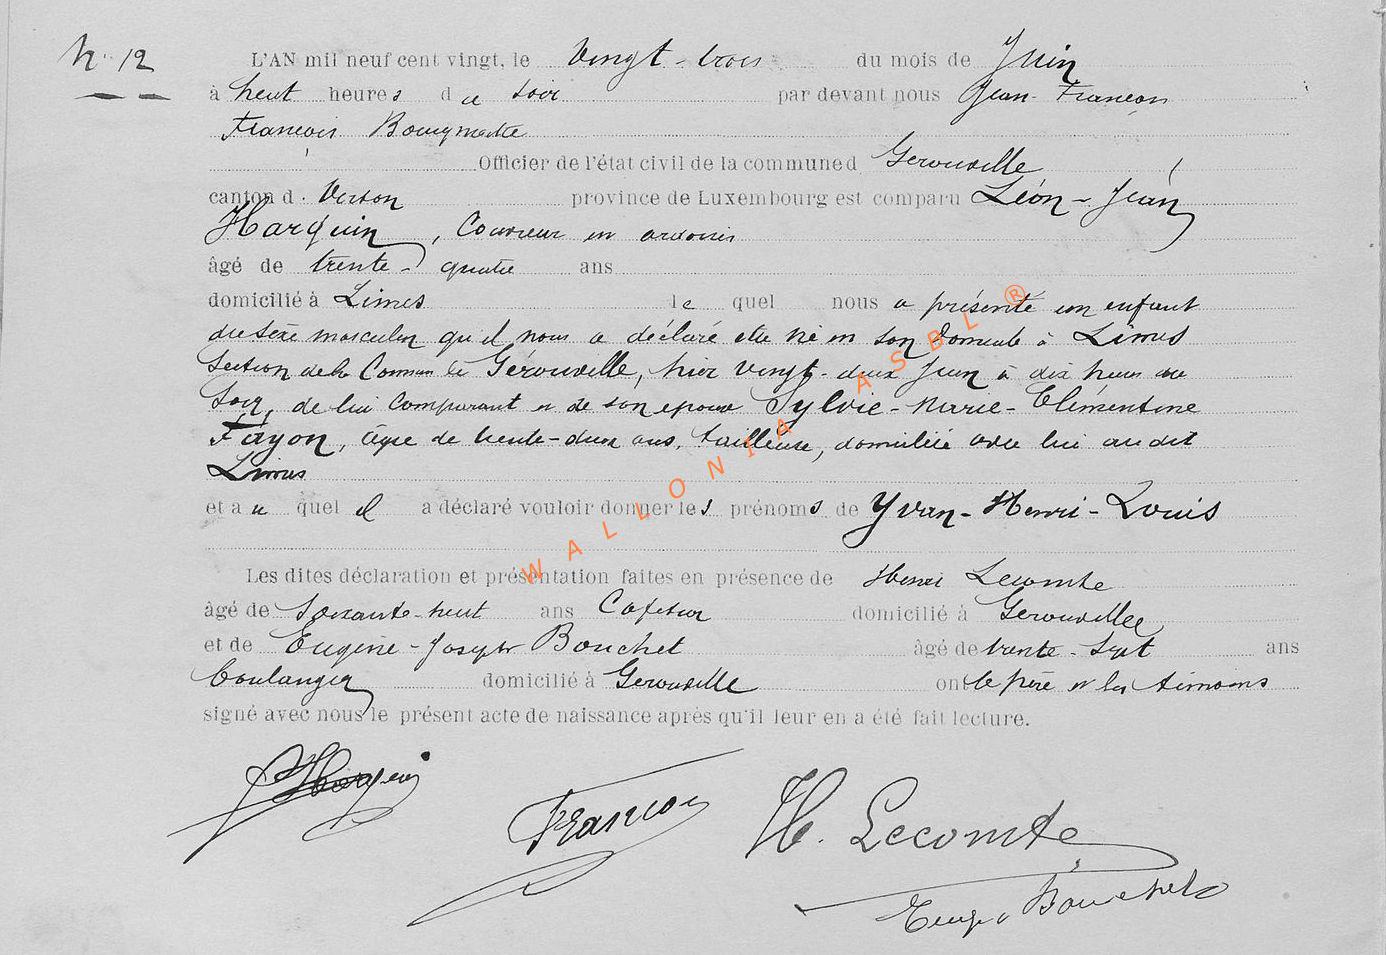 N° 12
L'AN mil neuf cent vingt, le vingt-trois du mois de Juin
à huit heures du soir par devant nous Jean-François
François Bourgmestre
Officier de l'état civil de la commune d Gérouville
canton d. Virton province de Luxembourg est comparu Léon-Jean
Harquin, Couvreur en ardoises
âgé de trente-quatre ans
domicilié à Limes lequel nous a présenté un enfant
du sexe masculin qu'il nous a déclaré être né en son domicile à Limes
Section de la Commune de Gérouville, hier vingt-deux Juin à dix heures du
soir, de lui comparant et de son épouse Sylvie-Marie-Clémentine
Fayon, âgée de trente-deux ans, tailleuse, domiciliée avec lui au dit
Limes
et auquel il a déclaré vouloir donner les prénoms de Yvan-Henri-Louis
Les dites déclaration et présentation faites en présence de Henri Lecomte
âgé de soixante-huit ans Cafetier domicilié à Gérouville
et de Eugène-Joseph Bouchet âgé de trente-sept ans
boulanger domicilié à Gérouville ont le père et les témoins
signé avec nous le présent acte de naissance après qu'il leur en a été fait lecture.
Harquin
François
H. Lecomte
Bouchet
WALLONIA ASBL ®